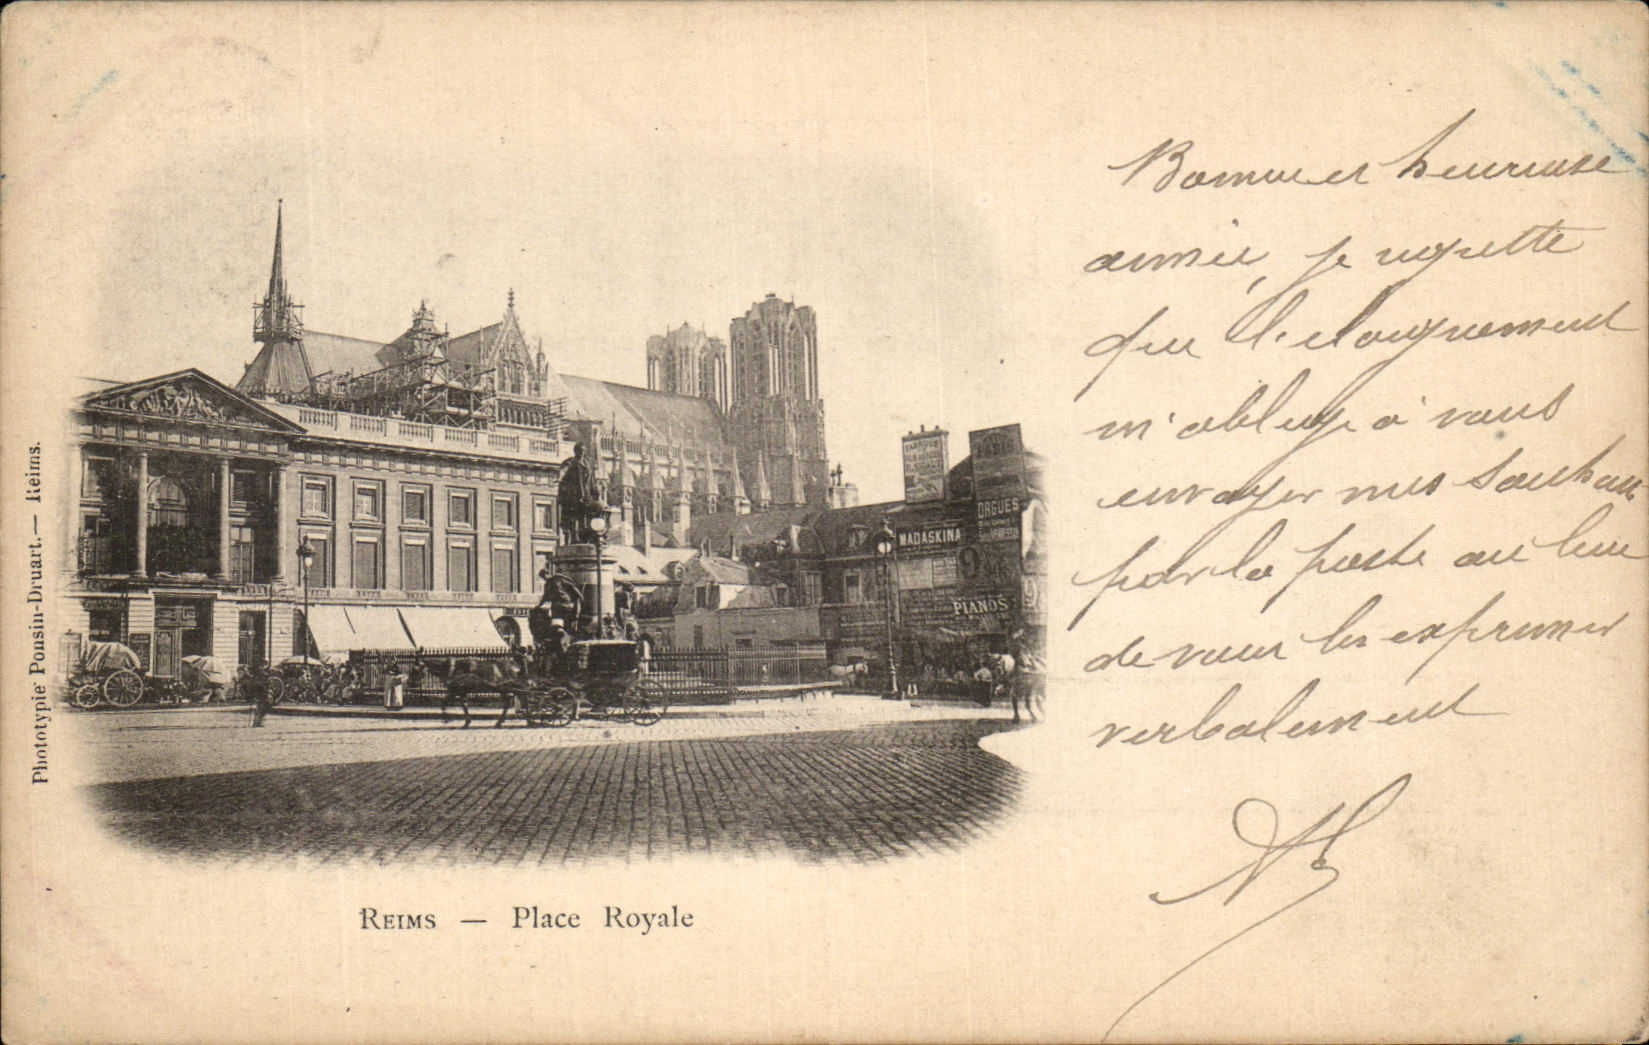 Bonne et heureuse
année, je regrette
que l'eloignement
m'oblige à vous
envoyer mes souhaits
par la poste au lieu
de vous les exprimer
verbalement
Phototypie Ponsin-Druart. — Reims.
MADASKINA
ORGUES
PIANOS
PARIS
9
REIMS — Place Royale